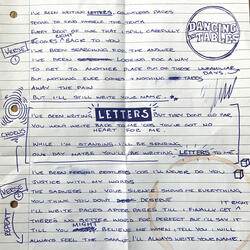 I'VE BEEN WRITING LETTERS, COUNTLESS PAGES
DANCING TABLES
EVERY DROP OF INK THAT I SPILL CAREFULLY
ECHOES BACK TO YOU
VERSE 1
I'VE BEEN SEARCHING FOR THE ANSWER
I'VE BEEN LOOKING FOR A WAY
TO GET TO ANOTHER PAGE PAST THESE UNFAMILIAR DAYS.
BUT NOTHING EVER COMES & NOTHING TAKES
AWAY THE PAIN
BUT I'LL STILL WRITE YOUR NAME.
I'VE BEEN WRITING LETTERS BUT THEY DON'T GO FAR
YOU WON'T WRITE BACK TO ME COS YOU'VE GOT NO
HEART FOR ME.
CHORUS
WHILE I'M STANDING I'LL BE SENDING
ONE DAY MAYBE YOU'LL BE WRITING LETTERS TO ME.
VERSE 2
I'VE BEEN LETTERS COS I'LL NEVER DO YOU
JUSTICE WITH MY WORDS
THE ANSWER IN YOUR SILENCE SHOWS ME EVERYTHING
YOU THINK YOU DON'T DESERVE
IT RIGHT
I'LL WRITE PAGES AFTER PAGES TILL I FINALLY GET
THERE'S NO BETTER WORD FOR PERFECT BUT I'LL SAY IT
TILL YOU MIGHT BELIEVE ME WHEN I TELL YOU I WILL
ALWAYS FEEL THE SAME I'LL ALWAYS WRITE YOUR NAME.
REPEAT